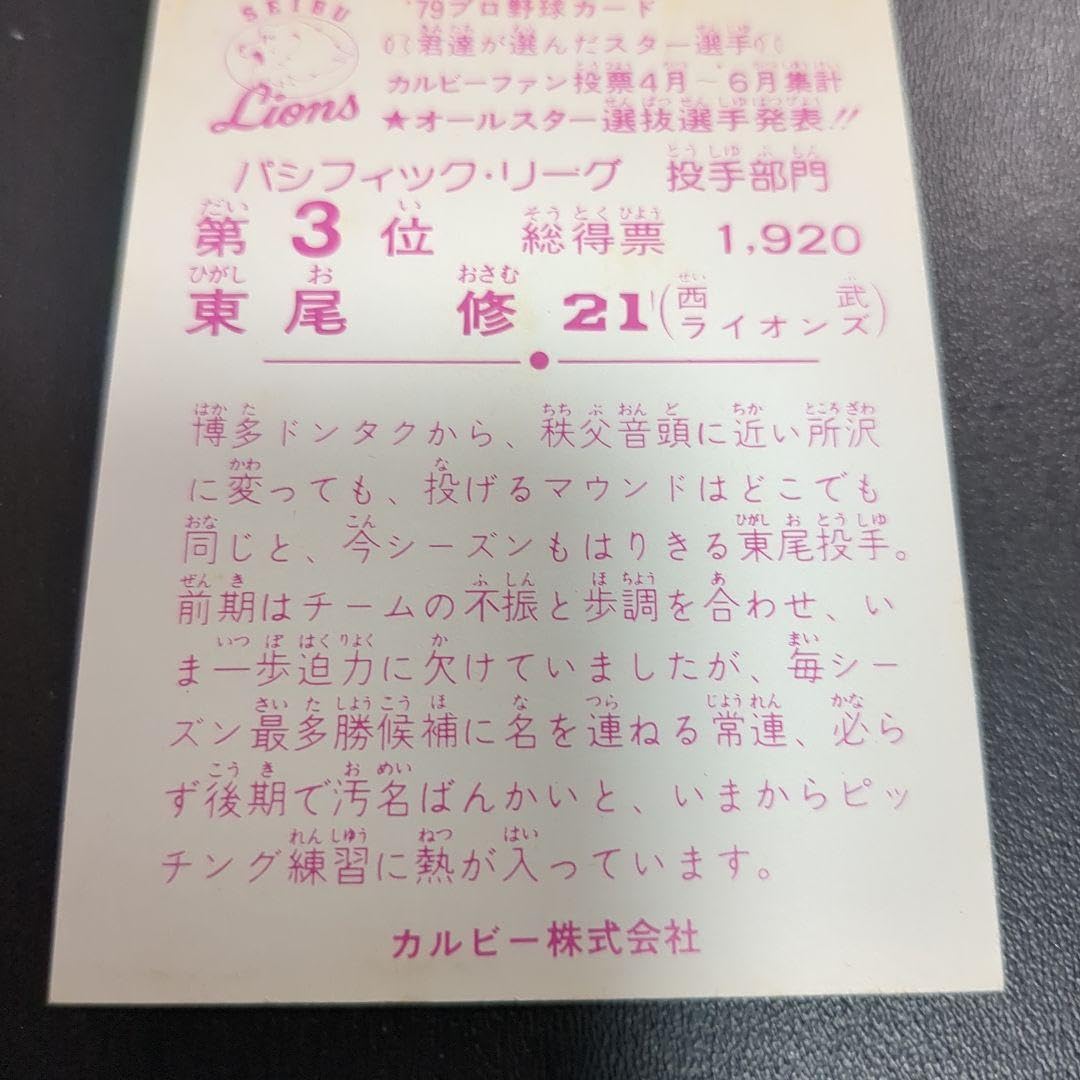 SEIBU
Lions
'79プロ野球カード
君達が選んだスター選手
カルビーファン投票4月~6月集計
★オールスター選抜選手発表!!
パシフィック・リーグ 投手部門
第3位 総得票 1,920
東尾 修 21(西武ライオンズ)
博多ドンタクから、秩父音頭に近い所沢
に変っても、投げるマウンドはどこでも
同じと、今シーズンもはりきる東尾投手。
前期はチームの不振と歩調を合わせ、い
ま一歩迫力に欠けていましたが、毎シー
ズン最多勝候補に名を連ねる常連、必ら
ず後期で汚名ばんかいと、いまからピッ
チング練習に熱が入っています。
カルビー株式会社